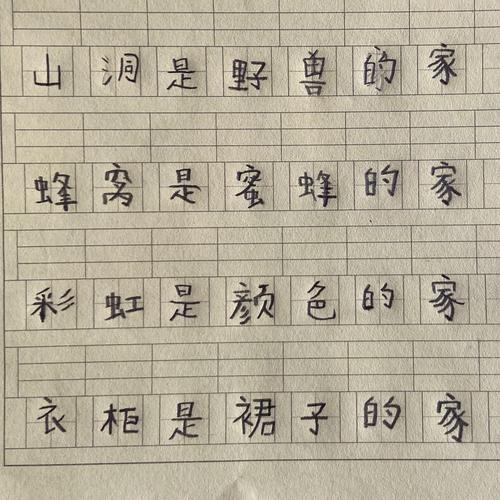 山洞是野兽的家
蜂窝是蜜蜂的家
彩虹是颜色的家
衣柜是裙子的家